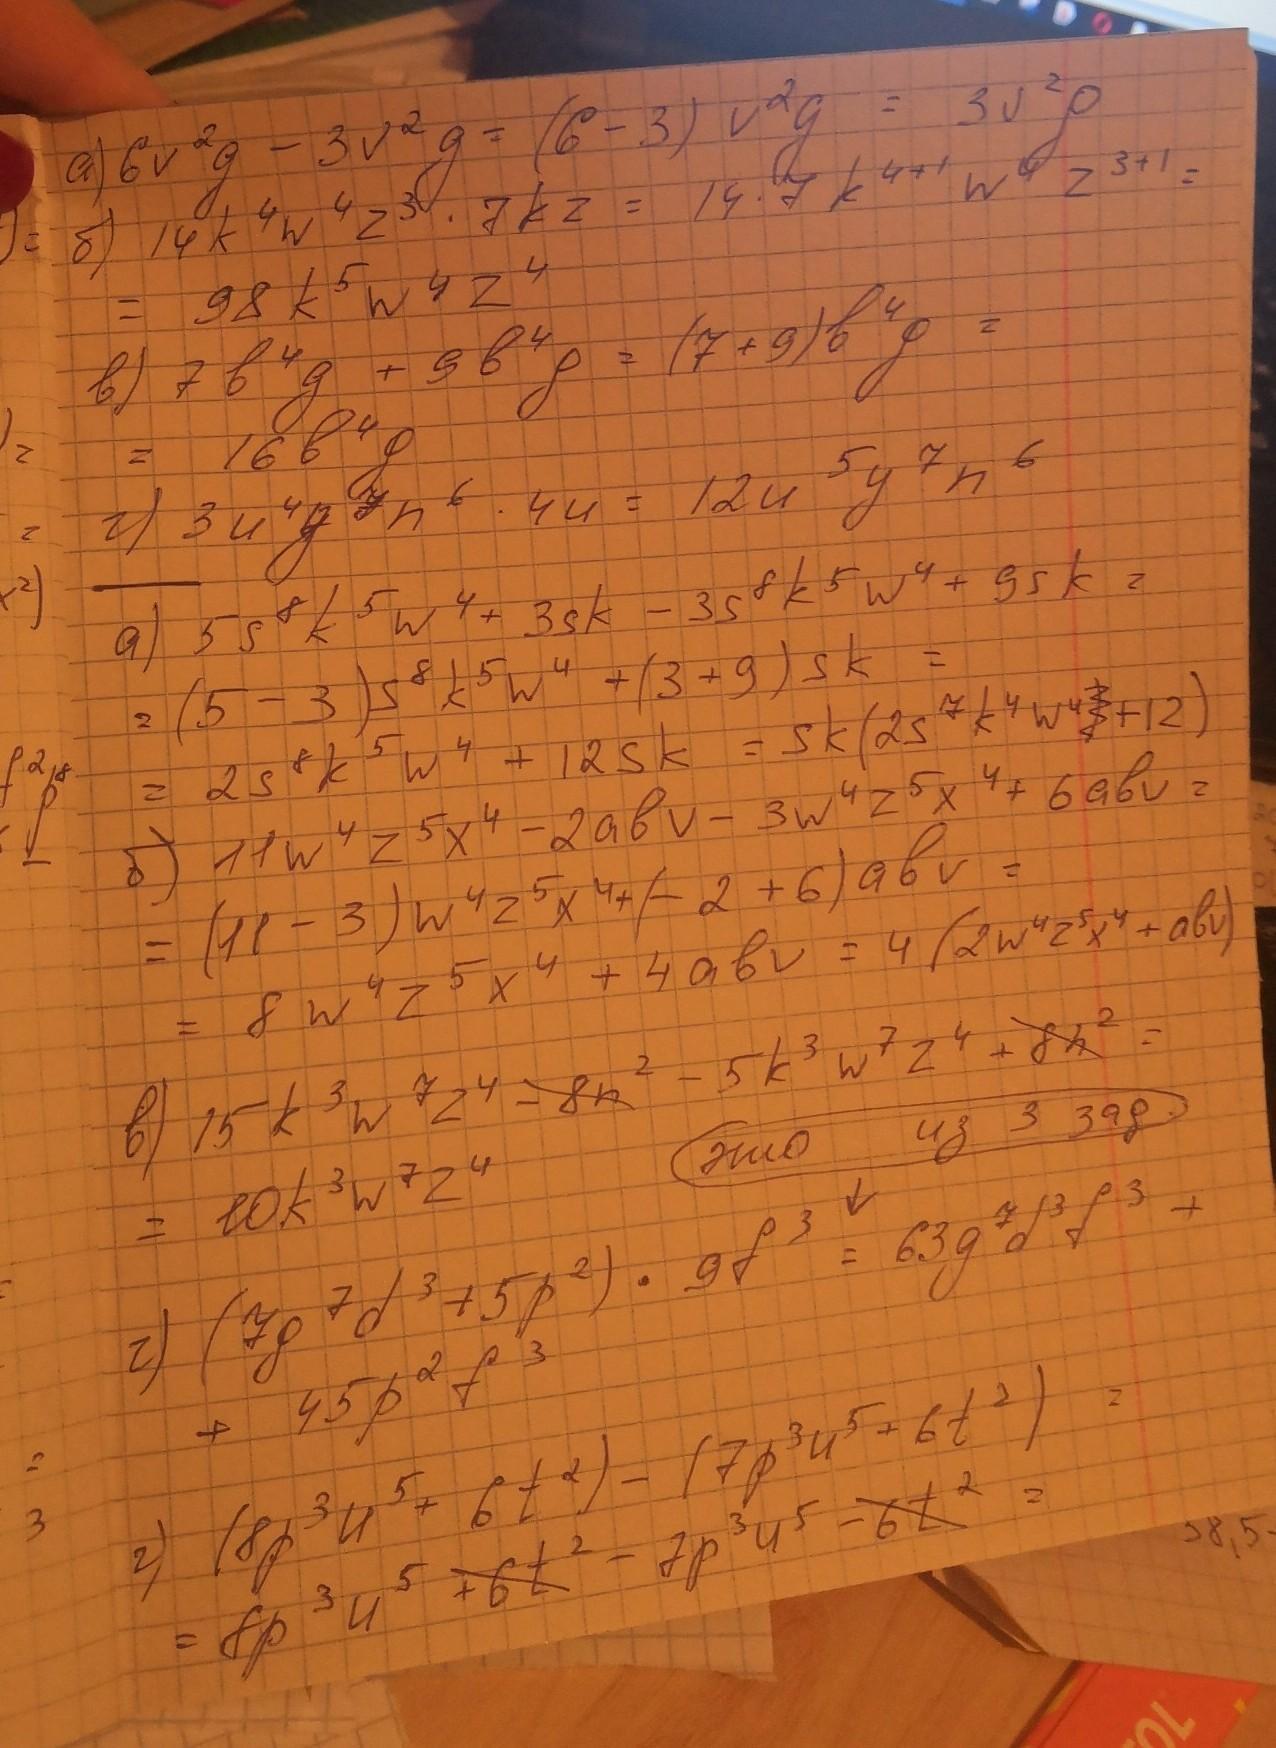 а) 6v²g − 3v²g = (6 − 3) v²g = 3v²g
б) 14k⁴w⁴z³ · 7kz = 14 · 7 k⁴⁺¹ w⁴ z³⁺¹ =
= 98k⁵w⁴z⁴
в) 7b⁴g + 9b⁴g = (7 + 9)b⁴g =
= 16b⁴g
г) 3u⁴y⁷n⁶ · 4u = 12u⁵y⁷n⁶
а) 5s⁸k⁵w⁴ + 3sk − 3s⁸k⁵w⁴ + 9sk =
= (5 − 3)s⁸k⁵w⁴ + (3 + 9)sk =
= 2s⁸k⁵w⁴ + 12sk = sk(2s⁷k⁴w⁴ + 12)
б) 11w⁴z⁵x⁴ − 2abv − 3w⁴z⁵x⁴ + 6abv =
= (11 − 3)w⁴z⁵x⁴ + (−2 + 6)abv =
= 8w⁴z⁵x⁴ + 4abv = 4(2w⁴z⁵x⁴ + abv)
в) 15k³w⁷z⁴ − 8n² − 5k³w⁷z⁴ + 8n² =
это из 3 зад.
= 10k³w⁷z⁴
↓
г) (7g⁷d³ + 5p²) · 9f³ = 63g⁷d³f³ +
+ 45p²f³
г) (8p³u⁵ + 6t²) − (7p³u⁵ + 6t²) =
= 8p³u⁵ + 6t² − 7p³u⁵ − 6t² =